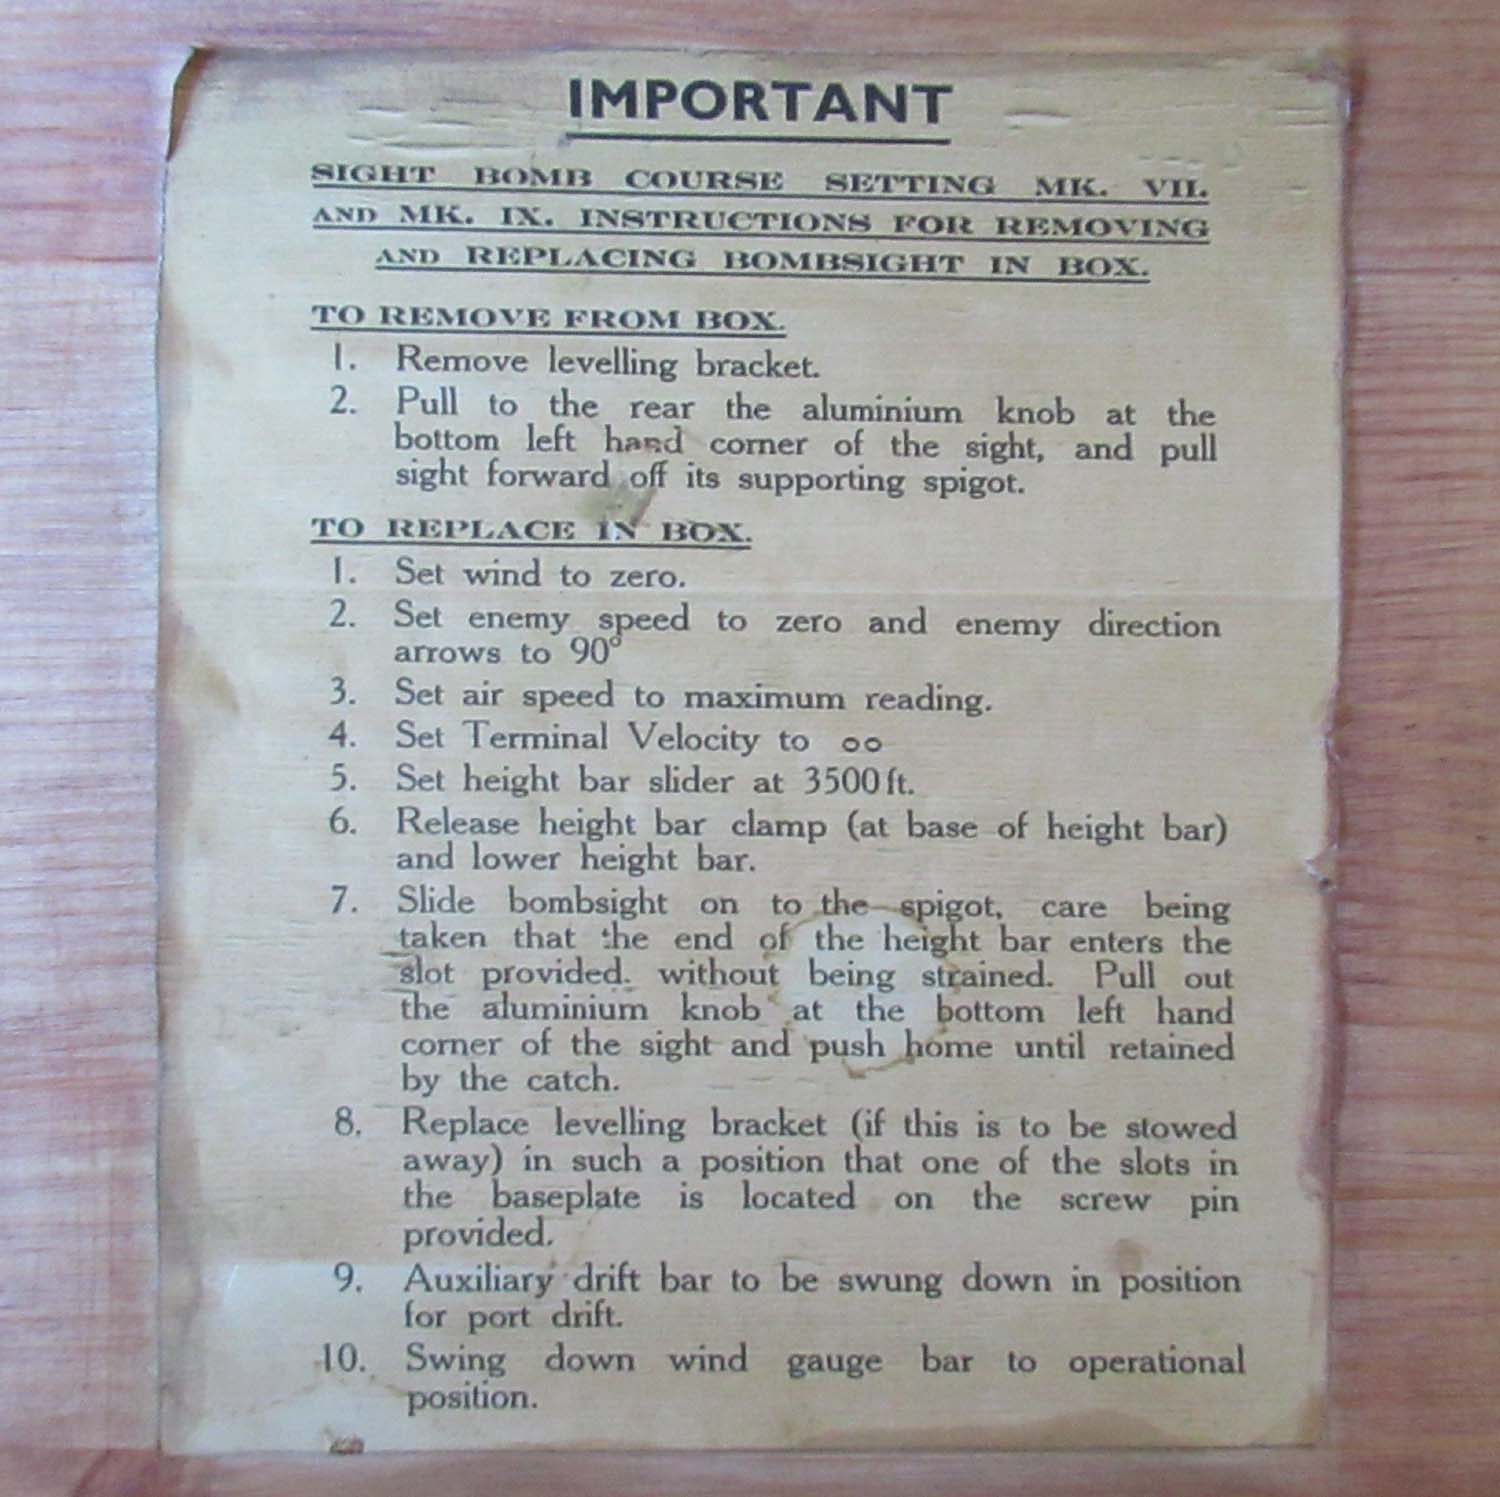 IMPORTANT
SIGHT BOMB COURSE SETTING MK. VII.
AND MK. IX. INSTRUCTIONS FOR REMOVING
AND REPLACING BOMBSIGHT IN BOX.
TO REMOVE FROM BOX.
1. Remove levelling bracket.
2. Pull to the rear the aluminium knob at the
bottom left hand corner of the sight, and pull
sight forward off its supporting spigot.
TO REPLACE IN BOX.
1. Set wind to zero.
2. Set enemy speed to zero and enemy direction
arrows to 90°
3. Set air speed to maximum reading.
4. Set Terminal Velocity to oo
5. Set height bar slider at 3500 ft.
6. Release height bar clamp (at base of height bar)
and lower height bar.
7. Slide bombsight on to the spigot, care being
taken that the end of the height bar enters the
slot provided. without being strained. Pull out
the aluminium knob at the bottom left hand
corner of the sight and push home until retained
by the catch.
8. Replace levelling bracket (if this is to be stowed
away) in such a position that one of the slots in
the baseplate is located on the screw pin
provided.
9. Auxiliary drift bar to be swung down in position
for port drift.
10. Swing down wind gauge bar to operational
position.